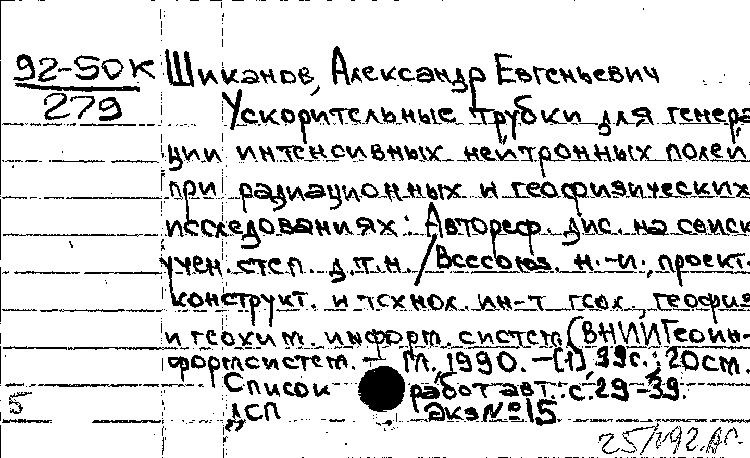 92-50К Шиканов, Александр Евгеньевич
279
Ускорительные трубки для генера
ции интенсивных нейтронных полей
при радиационных и геофизических
исследованиях: Автореф. дис. на соиск.
учен. степ. д.т.н. / Всесоюз. н.-и., проект.-
конструкт. и технол. ин-т геол., геофиз.
и геохим. информ. систем (ВНИИГеоин-
формсистем. - М., 1990. - [1], 39 с.; 20 см.
Список работ авт.: с. 29-39.
5 ДСП Экз № 15